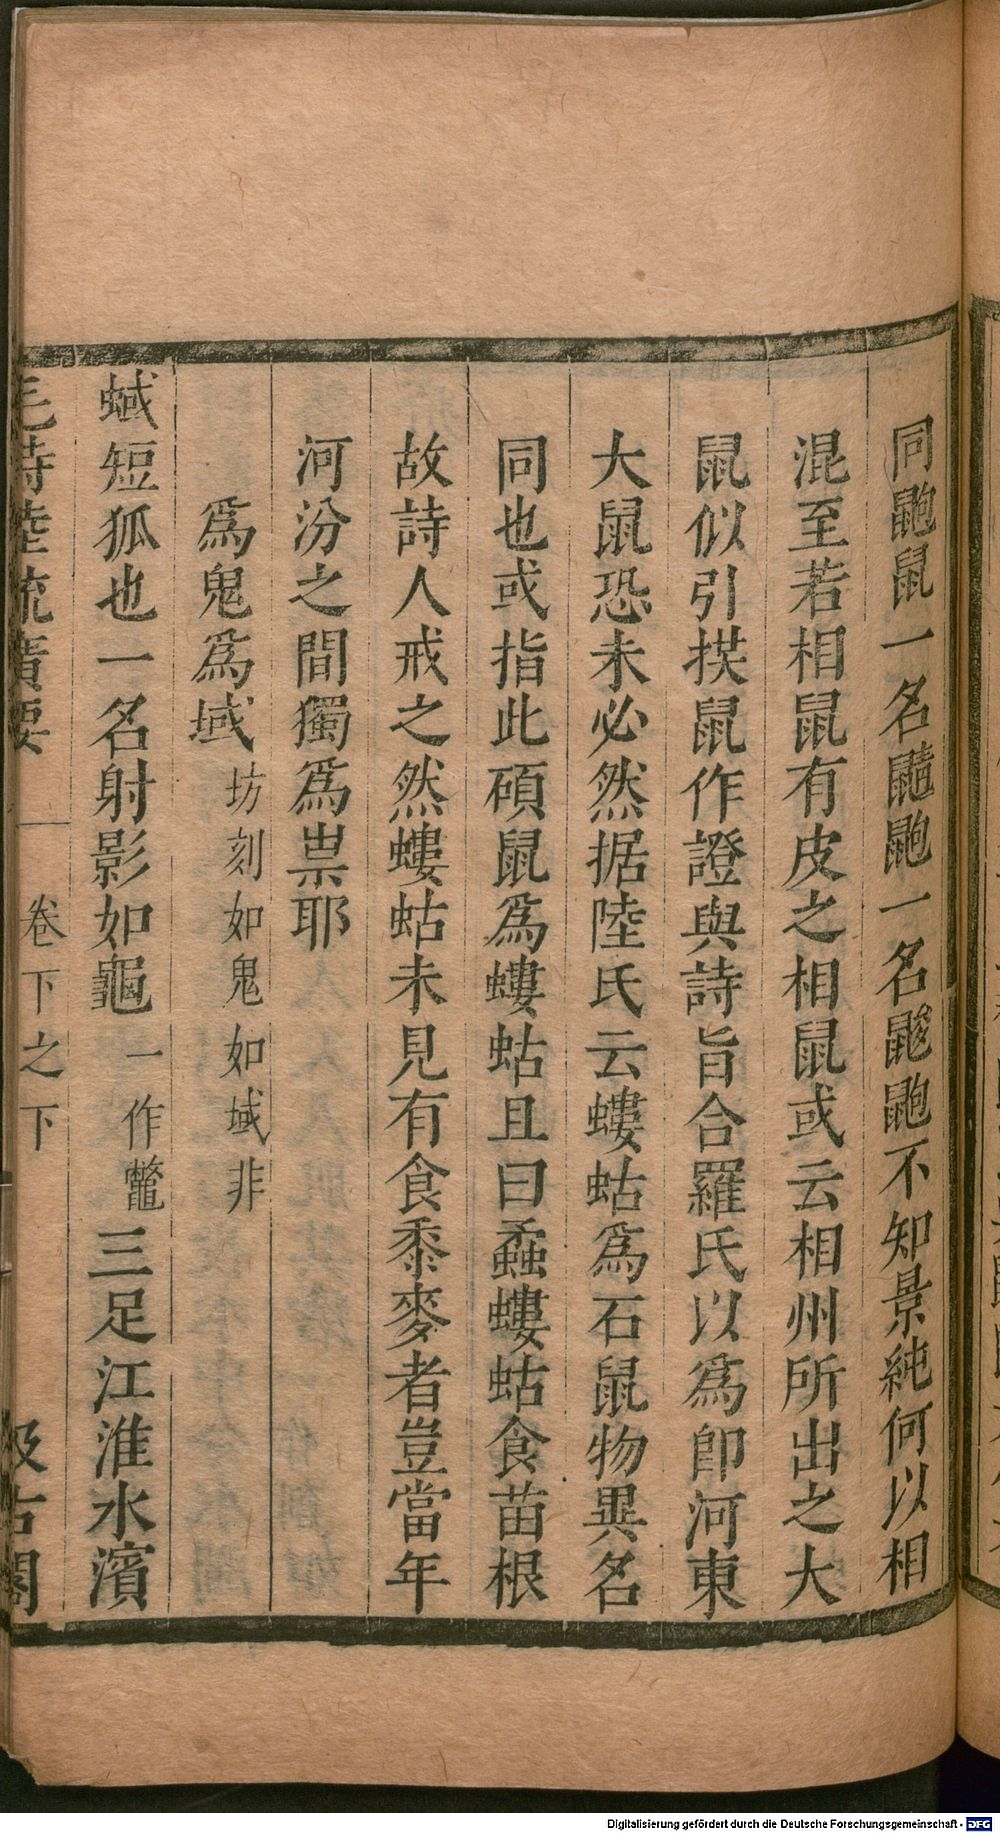 同鼩鼠一名䶅鼩一名鼨鼩不知景純何以相
混至若相鼠有皮之相鼠或云相州所出之大
鼠似引㨪鼠作證與詩旨合羅氏以為卽河東
大鼠恐未必然据陸氏云螻蛄為石鼠物異名
同也或指此碩鼠為螻蛄且曰蟊螻蛄食苗根
故詩人戒之然螻蛄未見有食黍麥者豈當年
河汾之間獨為祟耶
為鬼為蜮坊刻如鬼如蜮非
蜮短狐也一名射影如龜一作鼈三足江淮水濱
毛詩陸疏廣要 卷下之下 汲古閣
Digitalisierung gefördert durch die Deutsche Forschungsgemeinschaft - DFG